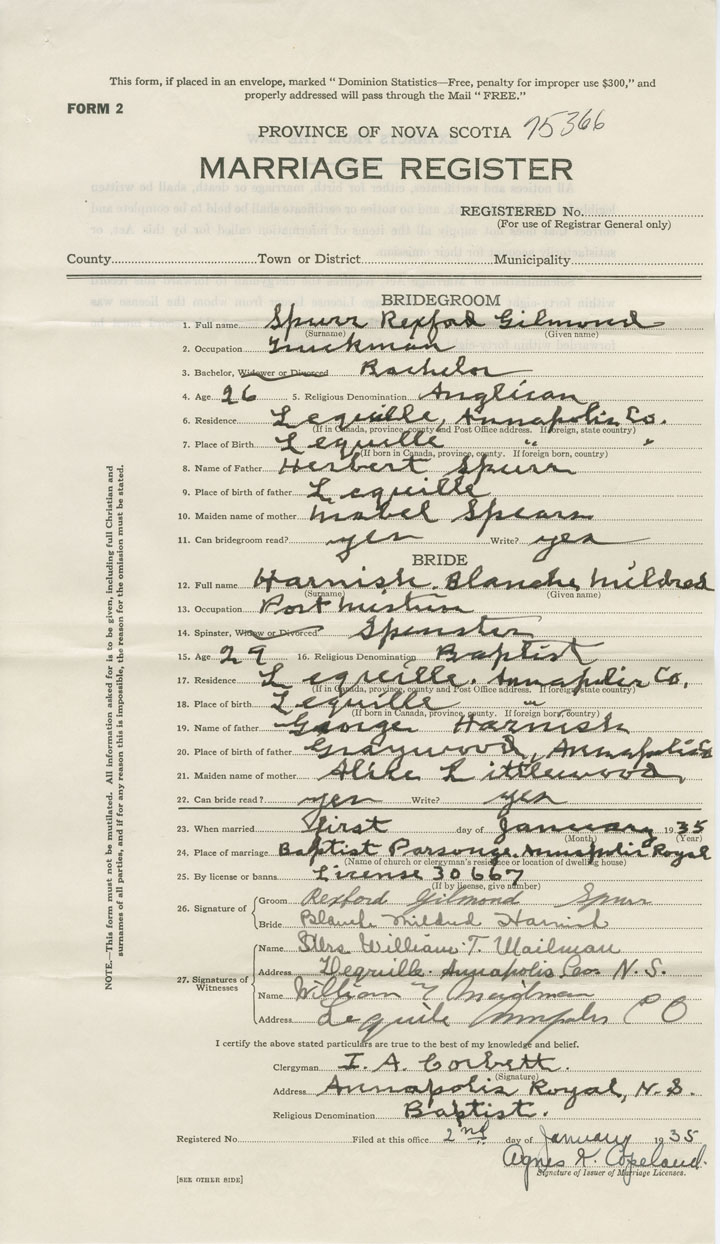 This form, if placed in an envelope, marked " Dominion Statistics—Free, penalty for improper use $300," and
properly addressed will pass through the Mail " FREE."
FORM 2
PROVINCE OF NOVA SCOTIA 75366
MARRIAGE REGISTER
REGISTERED No.
(For use of Registrar General only)
County Town or District Municipality
BRIDEGROOM
1. Full name Spurr Rexford Gilmond
(Surname) (Given name)
2. Occupation Truckman
3. Bachelor, Widower or Divorced Bachelor
4. Age 26 5. Religious Denomination Anglican
6. Residence Lequille, Annapolis Co.
(If in Canada, province, county and Post Office address. If foreign, state country)
7. Place of Birth Lequille " "
(If born in Canada, province, county. If foreign born, country)
8. Name of Father Herbert Spurr
9. Place of birth of father Lequille
10. Maiden name of mother Mabel Spears
11. Can bridegroom read? yes Write? yes
BRIDE
12. Full name Harnish. Blanche Mildred
(Surname) (Given name)
13. Occupation Post Mistress
14. Spinster, Widow or Divorced Spinster
15. Age 29 16. Religious Denomination Baptist
17. Residence Lequille. Annapolis Co.
(If in Canada, province, county and Post Office address. If foreign state country)
18. Place of birth Lequille "
(If born in Canada, province, county. If foreign born, country)
19. Name of father George Harnish
20. Place of birth of father Graywood, Annapolis Co
21. Maiden name of mother Alice Littlewood
22. Can bride read? yes Write? yes
23. When married first day of January 1935
(Month) (Year)
24. Place of marriage Baptist Parsonge, Annapolis Royal
(Name of church or clergyman's residence or location of dwelling house)
25. By license or banns License 30667
(If by license, give number)
26. Signature of Groom Rexford Gilmond Spurr
Bride Blanche Mildred Harnish
27. Signatures of Witnesses Name Mrs William T. Wailman
Address Lequille Annapolis Co. N. S.
Name William T
Address Lequile Annapolis CO
I certify the above stated particulars are true to the best of my knowledge and belief.
Clergyman I. A. Corbett.
(Signature)
Address Annapolis Royal, N. S.
Religious Denomination Baptist.
Registered No. Filed at this office 2nd day of January 1935
Agnes K. Copeland.
Signature of Issuer of Marriage Licenses.
[SEE OTHER SIDE]
NOTE.—This form must not be mutilated. All information asked for is to be given, including full Christian and
surnames of all parties, and if for any reason this is impossible, the reason for the omission must be stated.